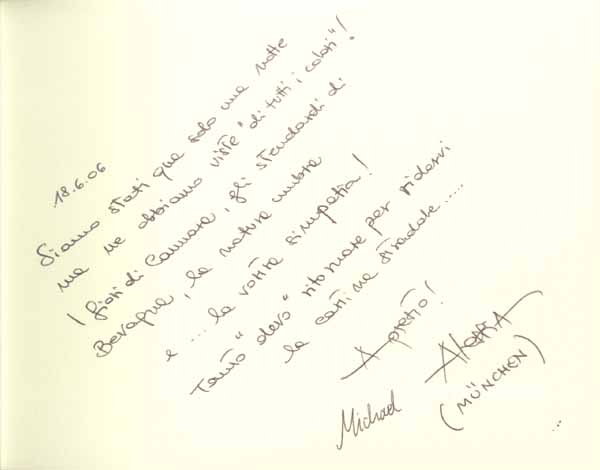 18.6.06
Siamo stati qua solo una notte
ma ne abbiamo viste "di tutti i colori"!
I fiori di Cannara, gli stendardi di
Bevagna, la natura umbra
e ... la vostra simpatia!
Tanto "devo" ritornare per ridarvi
la cartina stradale.....
A presto!
Michael
(MÜNCHEN)
...